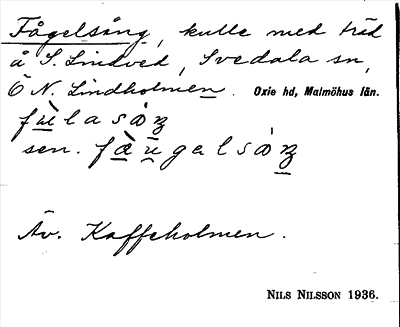 Fågelsång, kulle med träd
å S. Lindved, Svedala sn,
Ö N. Lindholmen. Oxie hd, Malmöhus län.
sen.
Äv. Kaffeholmen.
NILS NILSSON 1936.